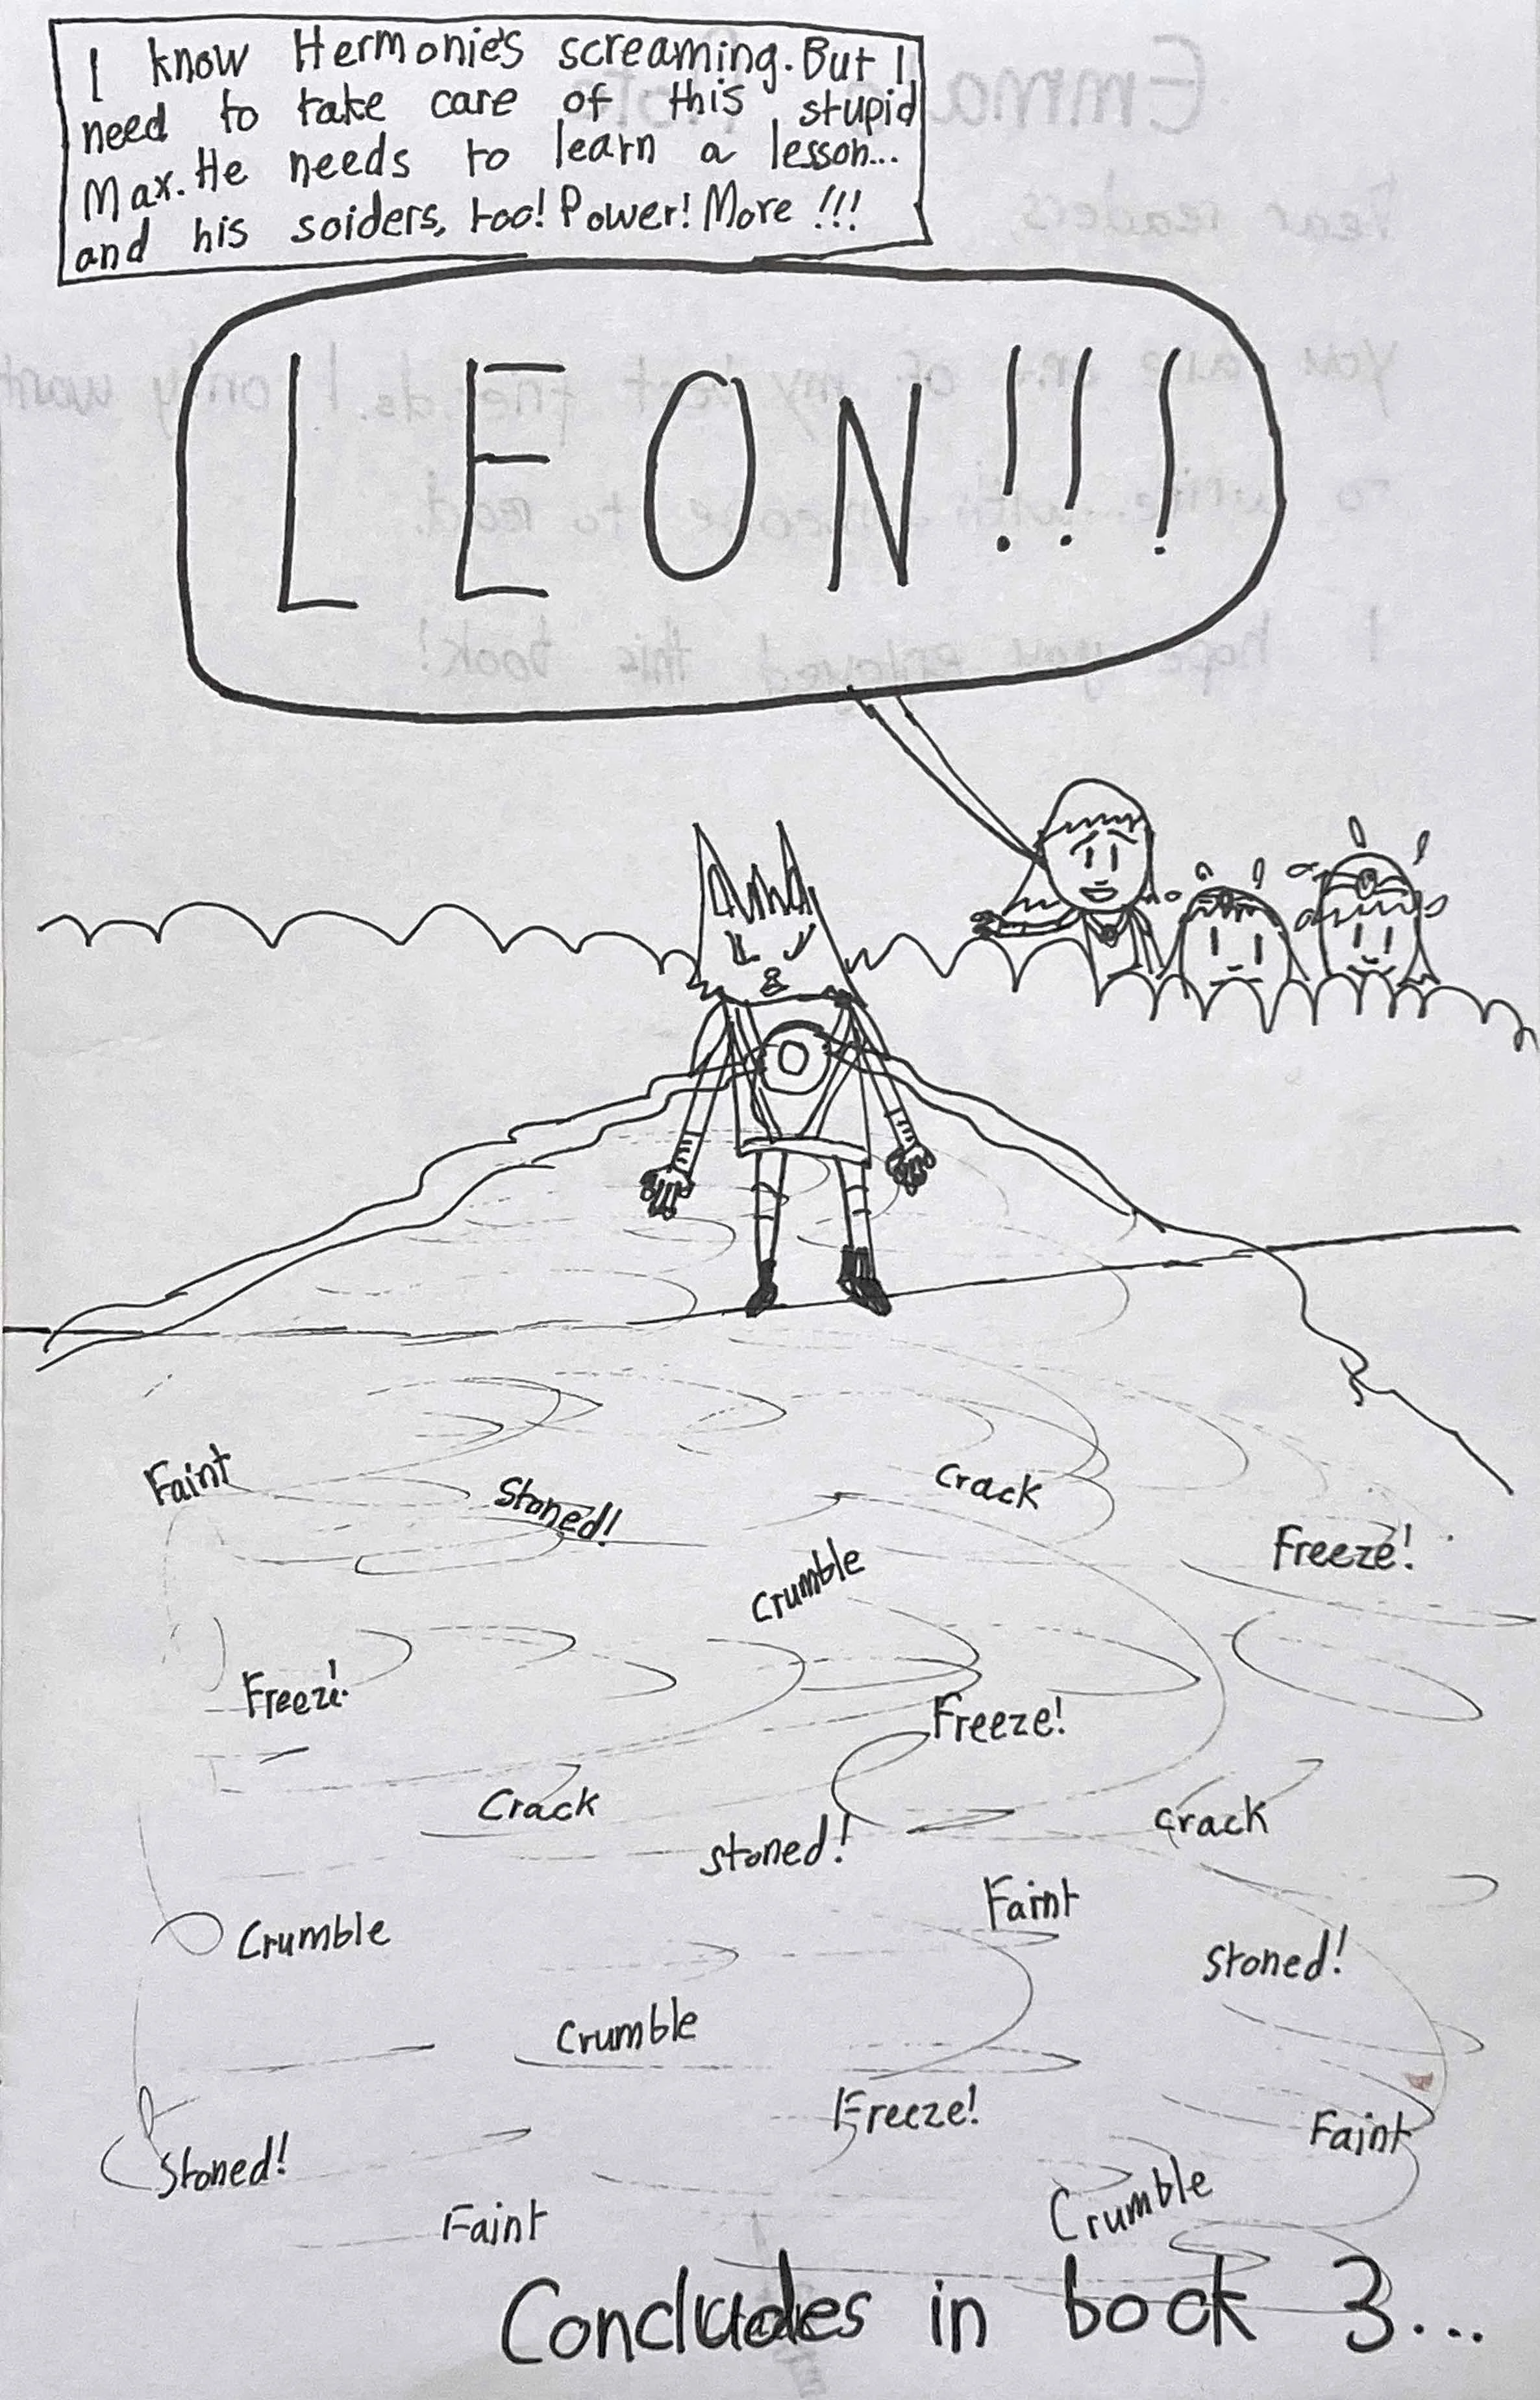 I know Hermonie's screaming. But I
need to take care of this stupid
Max. He needs to learn a lesson...
and his soiders, too! Power! More !!!
LEON!!!
Faint
Stoned!
Crack
Freeze!
Crumble
Freeze!
Freeze!
Crack
Stoned!
Crack
Faint
Crumble
Stoned!
Crumble
Freeze!
Faint
Stoned!
Crumble
Faint
Concludes in book 3...